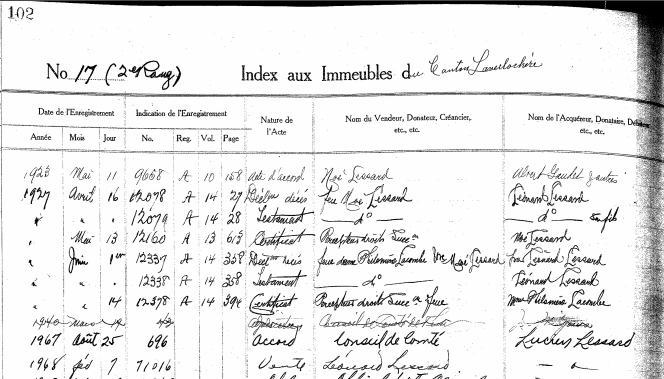 102
No 17 (2e Rang) Index aux Immeubles du Canton Laverlochère
Date de l'Enregistrement Indication de l'Enregistrement Nature de l'Acte Nom du Vendeur, Donateur, Créancier, etc., etc. Nom de l'Acquéreur, Donataire, Débiteur etc., etc.
Année Mois Jour No. Reg. Vol. Page
1923 Mai 11 9668 A 10 158 Acte d'accord Noé Lessard Albert Gaudet & autres
1927 Avril 16 12078 A 14 27 Décès Feu Noé Lessard Léonard Lessard
" " " 12079 A 14 28 Testament — do — — do —
" Mai 13 12160 A 13 613 Certificat Percepteur droits Succ Noé Lessard
" Juin 1er 12337 A 14 358 décès feue dame Philomène Lacombe Noé Lessard Lessard
" " " 12338 A 14 358 Testament — do — Léonard Lessard
" " 14 12378 A 14 394 Certificat Percepteur droits Succ feue Philomène Lacombe
1940 Mars 19
1967 Août 25 696 Accord Conseil de Comté Lucien Lessard
1968 fév 7 71016 Vente Léonard Lessard